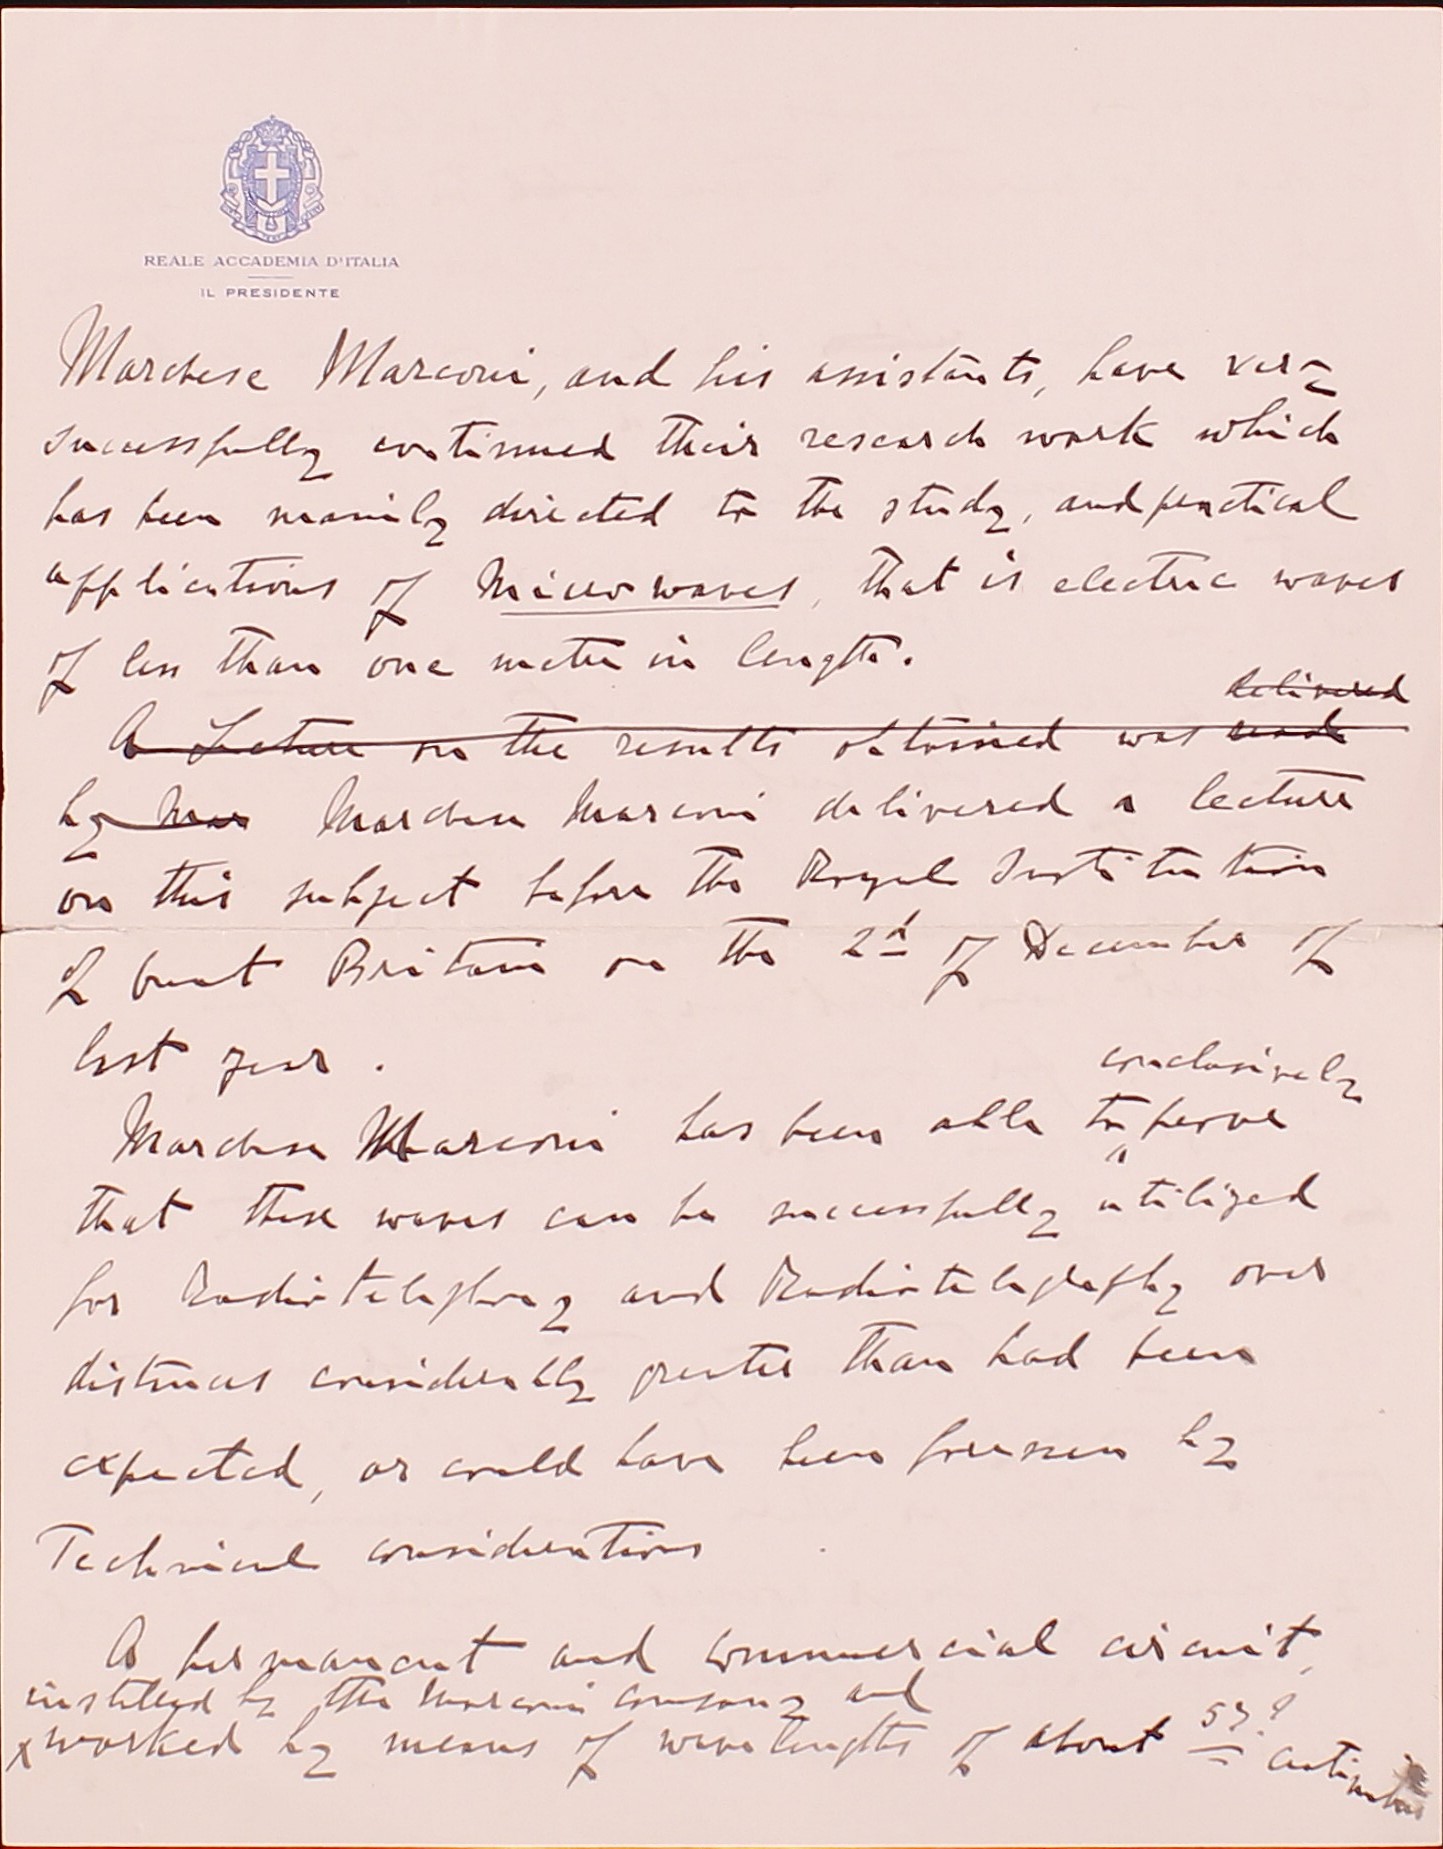 REALE ACCADEMIA D'ITALIA
IL PRESIDENTE
Marchese Marconi, and his assistants, have very
successfully continued their research work which
has been mainly directed to the study, and practical
applications of Micro waves, that is electric waves
of less than one meter in length.
delivered
A Lecture on the results obtained was read
by Mar Marchese Marconi delivered a lecture
on this subject before the Royal Institution
of Great Britain on the 2d of December of
last year.
conclusively
Marchese Marconi has been able to prove
that these waves can be successfully utilized
for Radiotelephony and Radiotelegraphy over
distances considerably greater than had been
expected, or could have been foreseen by
Technical considerations
A permanent and commercial circuit,
installed by the Marconi company and
x worked by means of wave lengths of about 57? centimeters